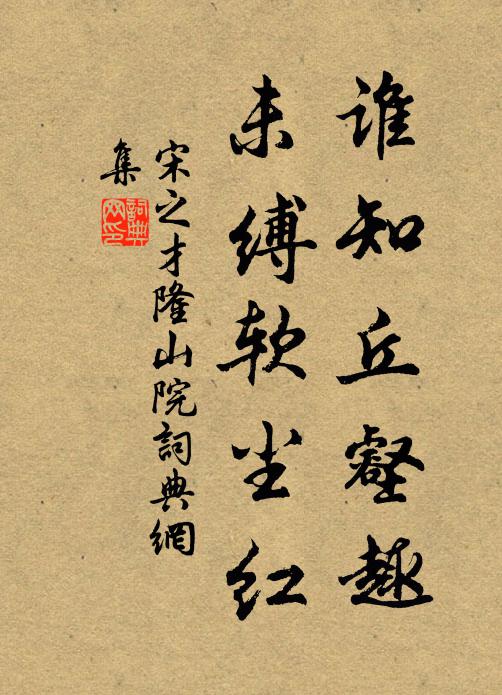 谁知丘壑趣
未缚软尘红
宋之才隆山院詞典網
集
詞典網印